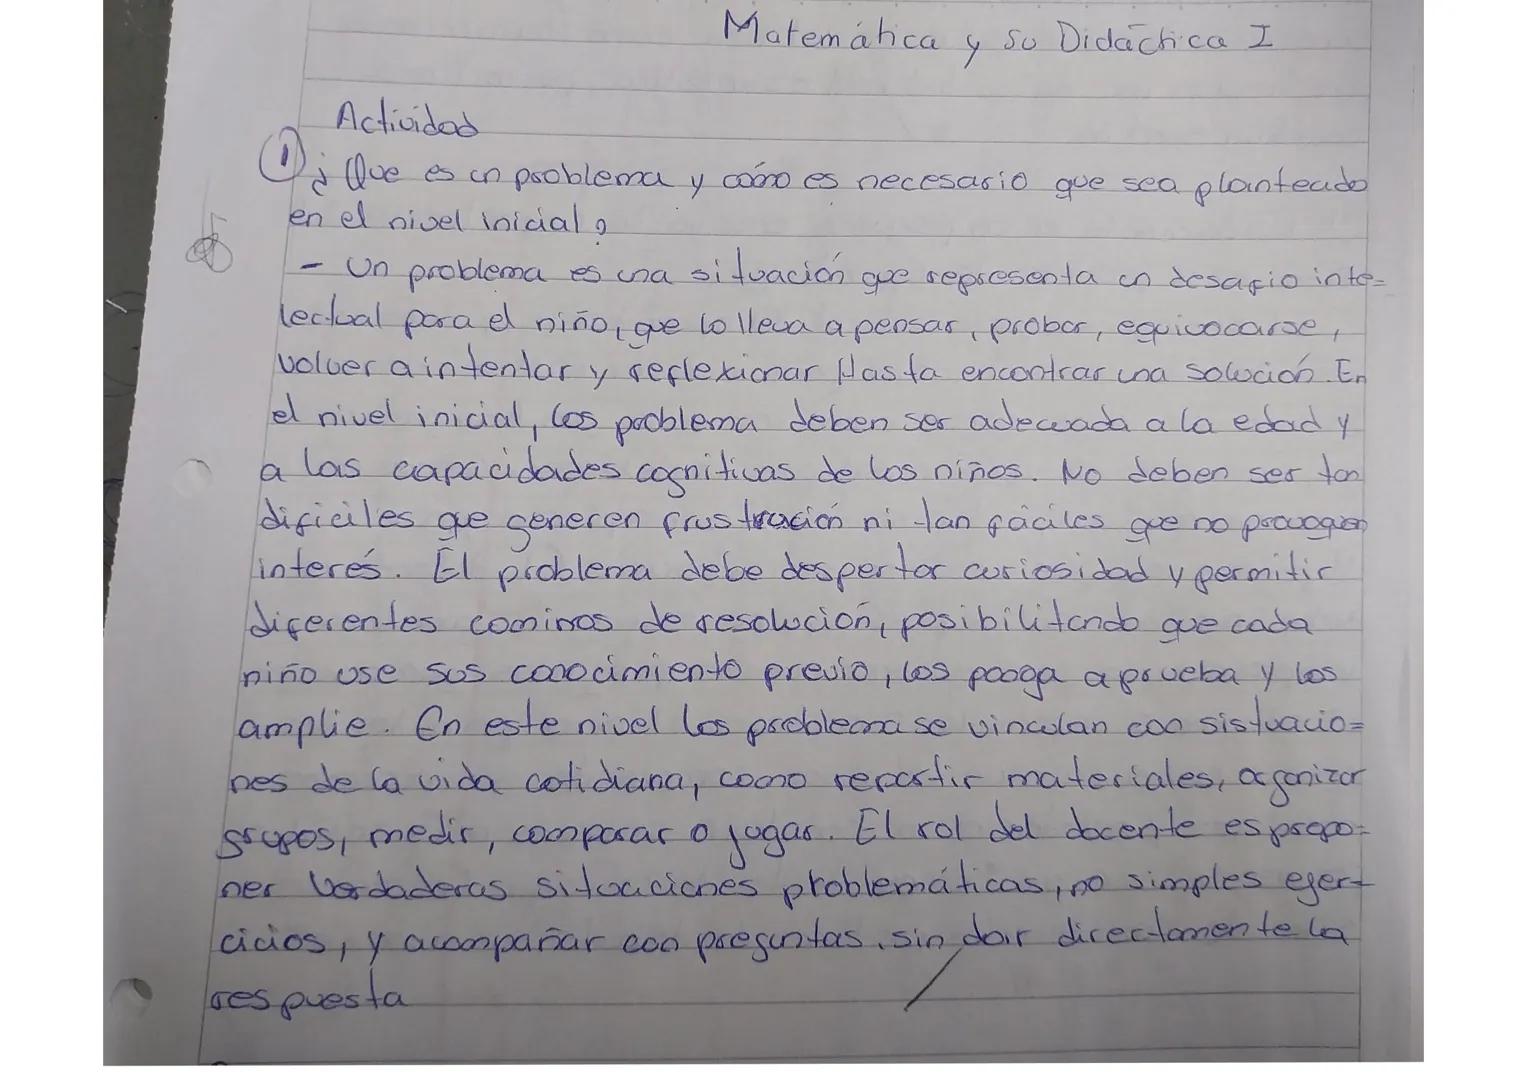 Matemática y su Didáctica I
Actividad
1) ¿Que es un problema y cómo es necesario que sea planteado
en el nivel inicial?
- Un problema es una situación que representa un desafio inte=
lectual para el niño, que lo lleva a pensar, probar, equivocarse,
volver a intentar y reflexionar Hasta encontrar una solución. En
el nivel inicial, los problema deben ser adecuada a la edad y
a las capacidades cognitivas de los niños. No deben ser tan
dificiles que generen frustración ni tan fáciles que no provoquen
interés. El problema debe despertar curiosidad y permitir
diferentes caminos de resolución, posibilitando que cada
niño use sus conocimiento previo, los ponga a prueba y los
amplie. En este nivel los problema se vinculan con sistuacio=
nes de la vida cotidiana, como repartir materiales, organizar
grupos, medir, comparar o jugar. El rol del docente es propo=
ner verdaderas situaciones problemáticas, no simples ejer-
cicios, y acompañar con preguntas, sin dar directamente la
respuesta